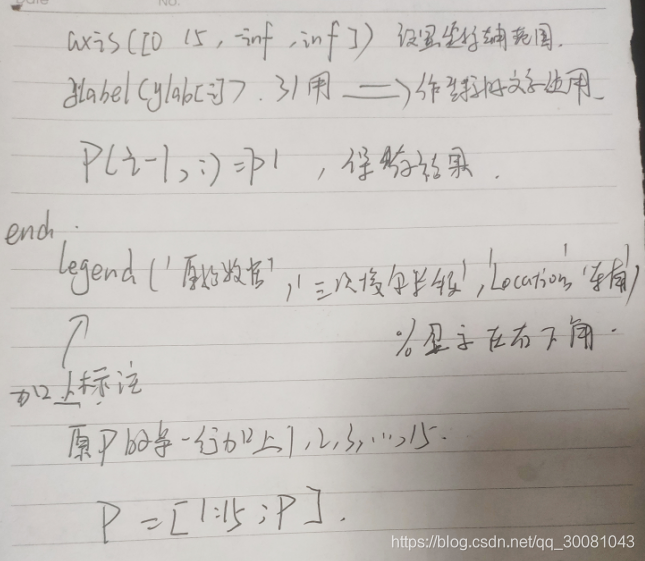 No.
axis([0 15, -inf, inf]) 设置坐标轴范围.
ylabel(ylab{i}). 引用 ⟹ 作坐标的文字使用
P(i-1,:)=p1 , 保存结果.
end.
legend('原始数据','三次','Location',
%显示在右下角.
加上标注
原P的第一行加上1,2,3,…,15.
P=[1:15;P].
https://blog.csdn.net/qq_30081043